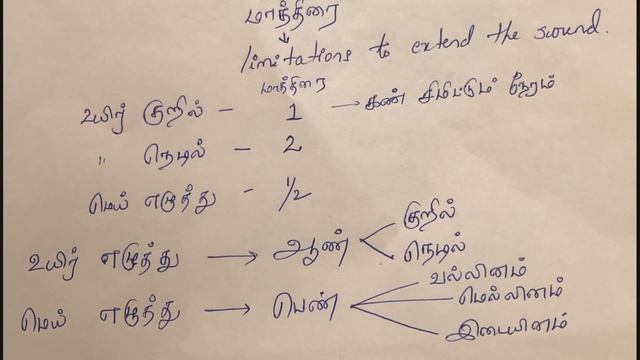 மாத்திரை
↓
limitations to extend the sound.
மாத்திரை
உயிர் குறில் – 1 → கண் சிமிட்டும் நேரம்
" நெடில் – 2
மெய் எழுத்து – 1/2
உயிர் எழுத்து → ஆண் குறில்
நெடில்
மெய் எழுத்து → பெண் வல்லினம்
மெல்லினம்
இடையினம்